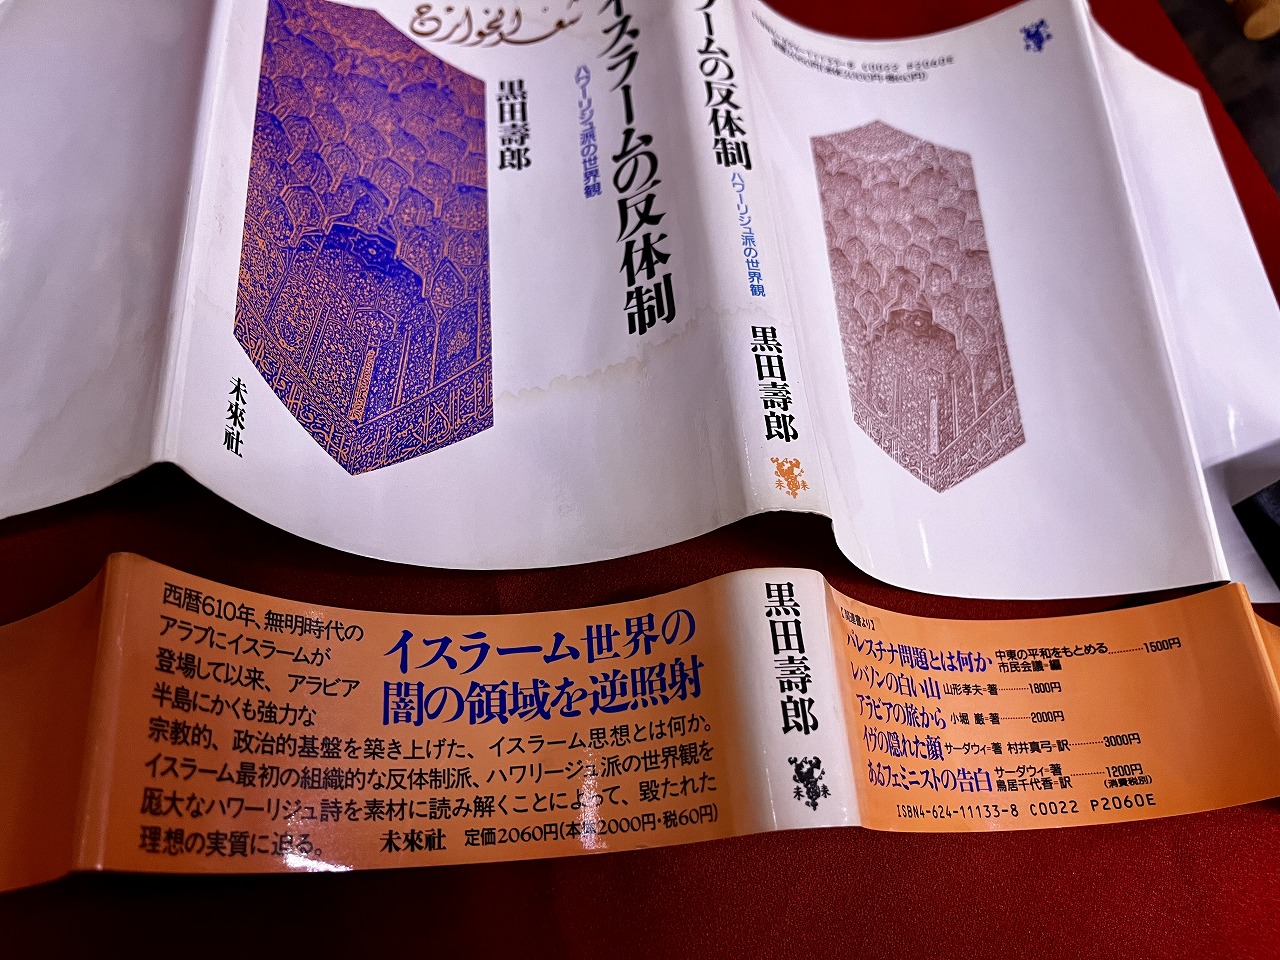 شعر الخوارج
イスラームの反体制
ハワーリジュ派の世界観
黒田壽郎
未來社
ラームの反体制
ハワーリジュ派の世界観
黒田壽郎
未 未
C0022 P2060E
イスラーム世界の
闇の領域を逆照射
西暦610年、無明時代の
アラブにイスラームが
登場して以来、アラビア
半島にかくも強力な
宗教的、政治的基盤を築き上げた、イスラーム思想とは何か。
イスラーム最初の組織的な反体制派、ハワリージュ派の世界観を
厖大なハワーリジュ詩を素材に読み解くことによって、毀たれた
理想の実質に迫る。
未來社 定価2060円(本体2000円・税60円)
黒田壽郎
未 未
【関連書より】
パレスチナ問題とは何か 中東の平和をもとめる市民会議=編…………1500円
レバノンの白い山 山形孝夫=著…………1800円
アラビアの旅から 小堀 巌=著…………2000円
イヴの隠れた顔 サーダウィ=著 村井真弓=訳…………3000円
あるフェミニストの告白 サーダウィ=著 鳥居千代香=訳…………1200円
(消費税別)
ISBN4-624-11133-8 C0022 P2060E